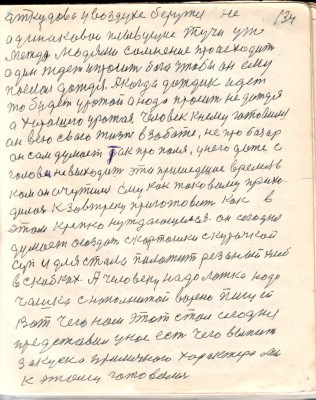 аткудова у воздухе берутся не 134
адинаковои плывущие тучи уже
между людями сомнение происходит
адин ждет и просит бога чтобы он ему
послал дождя. А когда дождик идет
то будет урожай а надо просить не дождя
а хорошего урожая. Человек к нему готовится
он всю сваю жизн взаботе, не про базар
он сам думает так про поля, у него даже с
головы невыходит эта пришедшее время в
ком он очутился ему как таковому прихо-
дилося к завтрему приготовить как в
этом крепко нуждающися. он сегодня
думает создат с картошки с курочкой
суп и для стола положит резаный хлеб
в скибках. А человеку надо ложка надо
чашка с наполнитой варено пищей
Вот чего нам этот стол сегодня
представил у нас ест чего выпит
закуска приличного характера мы
к этому готовимся